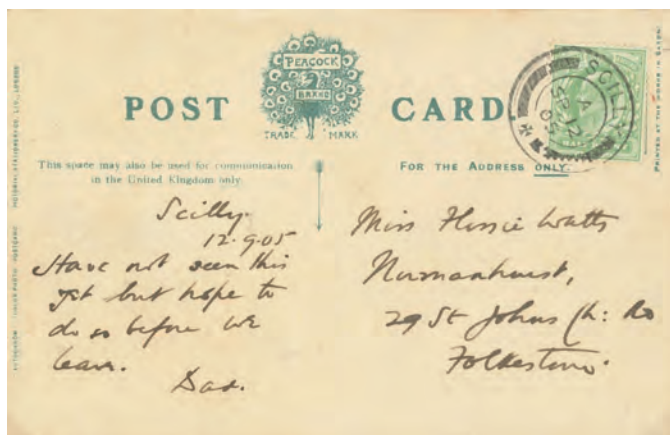 POST CARD
PEACOCK
BRAND
TRADE MARK
This space may also be used for communication
in the United Kingdom only.
FOR THE ADDRESS ONLY.
SCILLY
A
SP 12
05
Scilly.
12.9.05
Have not seen this
yet but hope to
do so before we
leave.
Dad.
Miss Watts
Normanhurst,
29 St Johns Ch: Rd
Folkestone.